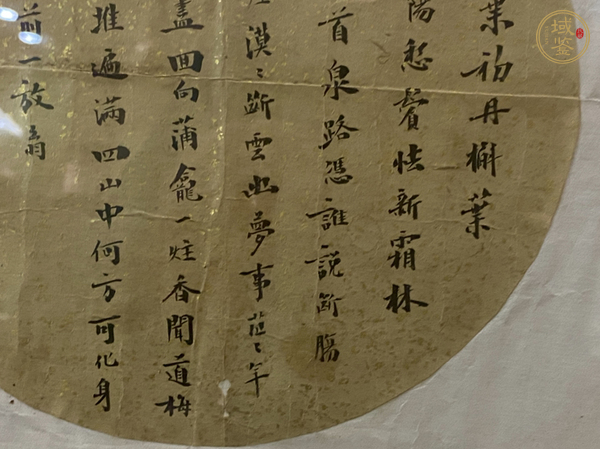 葉初丹槲葉
陽愁鬢怯新霜林
首泉路憑誰說断腸
漠〻斷雲幽夢事茫〻年
盡囬向蒲龕一炷香聞道梅
堆遍滿四山中何方可化身
前一放翁
域鉴